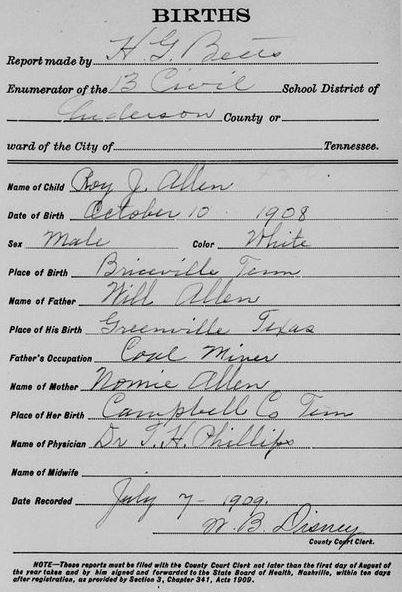 BIRTHS
Report made by H. G. Betts
Enumerator of the 13 Civil School District of
Anderson County or
ward of the City of Tennessee.
Name of Child Roy J. Allen
Date of Birth October 10 1908
Sex Male Color White
Place of Birth Briceville Tenn
Name of Father Will Allen
Place of His Birth Greenville Texas
Father's Occupation Coal Miner
Name of Mother Nomie Allen
Place of Her Birth Campbell Co Tenn
Name of Physician Dr T. H. Phillips
Name of Midwife
Date Recorded July 7 - 1909.
W. B. Disney
County Court Clerk.
NOTE—These reports must be filed with the County Court Clerk not later than the first day of August of
the year taken and by him signed and forwarded to the State Board of Health, Nashville, within ten days
after registration, as provided by Section 3, Chapter 341, Acts 1909.